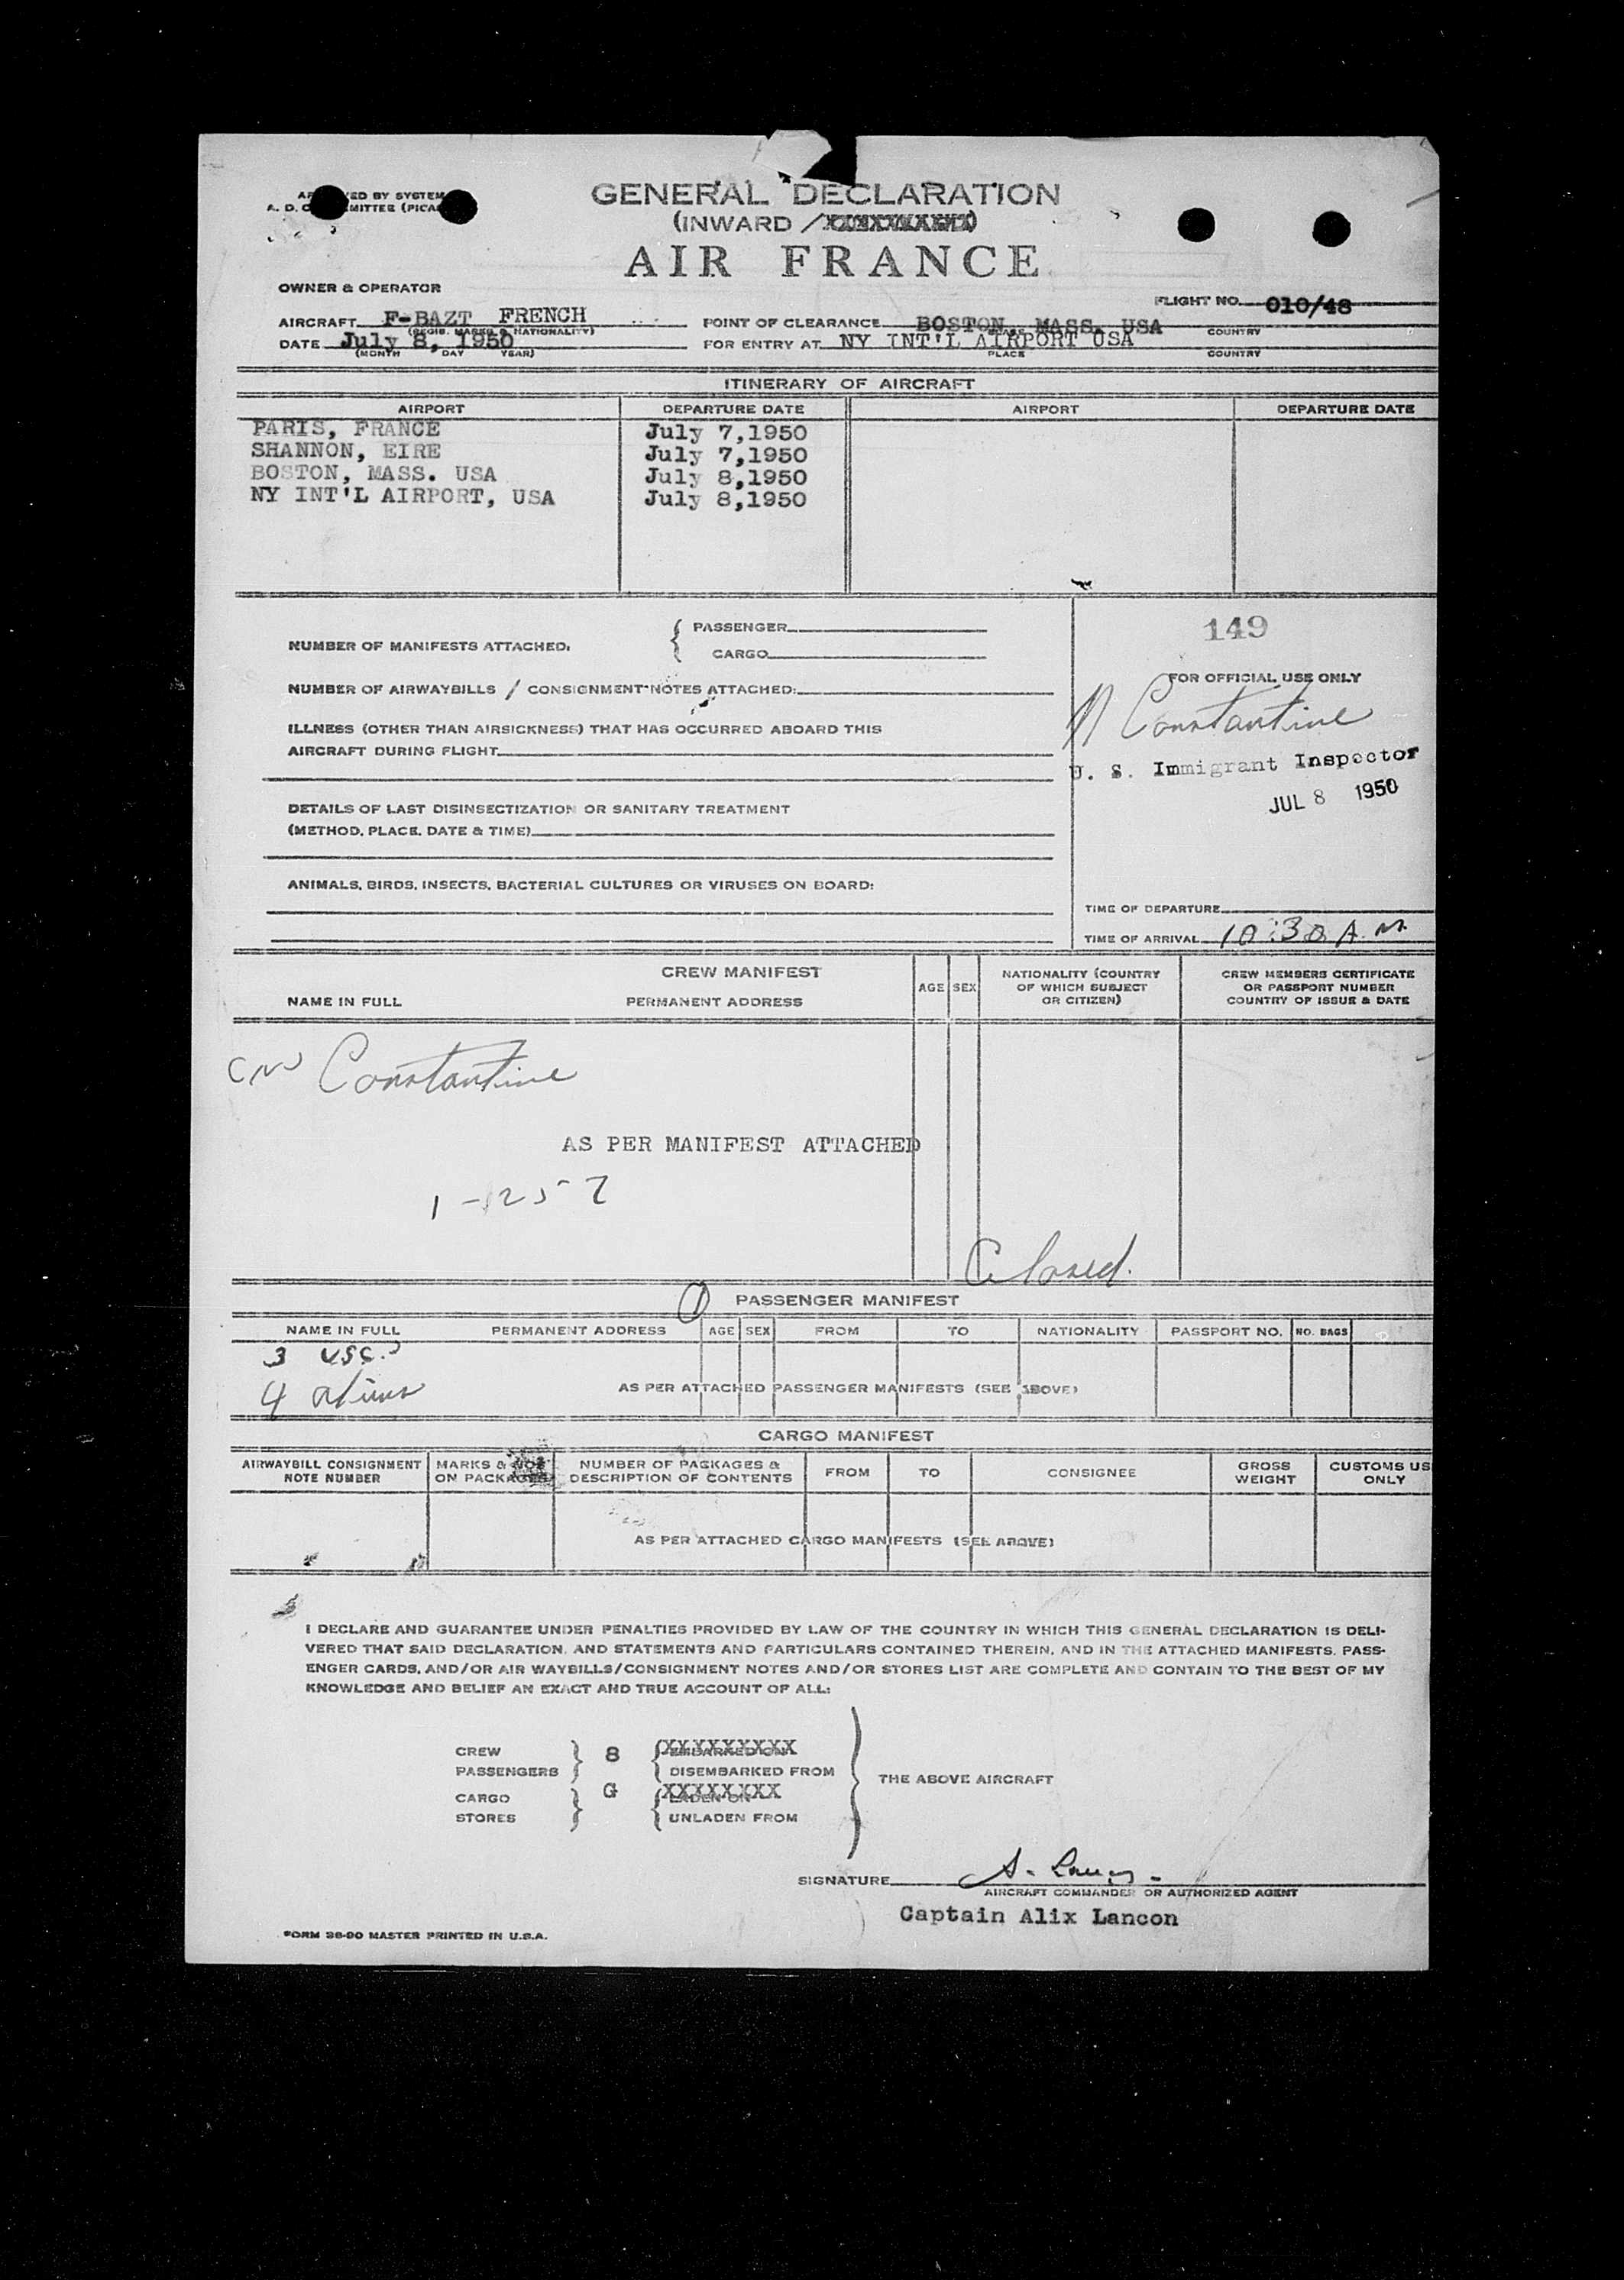 GENERAL DECLARATION
(INWARD /
AIR FRANCE
OWNER & OPERATOR
FLIGHT NO. 010/48
AIRCRAFT F-BAZT FRENCH
(REGIS. MARKS & NATIONALITY)
POINT OF CLEARANCE BOSTON, MASS. USA
PLACE COUNTRY
DATE July 8, 1950
(MONTH DAY YEAR)
FOR ENTRY AT NY INT'L AIRPORT USA
PLACE COUNTRY
ITINERARY OF AIRCRAFT
AIRPORT DEPARTURE DATE AIRPORT DEPARTURE DATE
PARIS, FRANCE July 7,1950
SHANNON, EIRE July 7,1950
BOSTON, MASS. USA July 8,1950
NY INT'L AIRPORT, USA July 8,1950
NUMBER OF MANIFESTS ATTACHED:
PASSENGER
CARGO
149
NUMBER OF AIRWAYBILLS / CONSIGNMENT NOTES ATTACHED:
FOR OFFICIAL USE ONLY
Constantine
ILLNESS (OTHER THAN AIRSICKNESS) THAT HAS OCCURRED ABOARD THIS
AIRCRAFT DURING FLIGHT
U. S. Immigrant Inspector
JUL 8 1950
DETAILS OF LAST DISINSECTIZATION OR SANITARY TREATMENT
(METHOD, PLACE, DATE & TIME)
ANIMALS, BIRDS, INSECTS, BACTERIAL CULTURES OR VIRUSES ON BOARD:
TIME OF DEPARTURE
TIME OF ARRIVAL 10:30 A.M.
CREW MANIFEST
NAME IN FULL PERMANENT ADDRESS AGE SEX
NATIONALITY (COUNTRY
OF WHICH SUBJECT
OR CITIZEN)
CREW MEMBERS CERTIFICATE
OR PASSPORT NUMBER
COUNTRY OF ISSUE & DATE
Constantine
AS PER MANIFEST ATTACHED
1-1257
Closed.
PASSENGER MANIFEST
NAME IN FULL PERMANENT ADDRESS AGE SEX FROM TO NATIONALITY PASSPORT NO. NO. BAGS
3 USC.
4 aliens
AS PER ATTACHED PASSENGER MANIFESTS (SEE ABOVE)
CARGO MANIFEST
AIRWAYBILL CONSIGNMENT
NOTE NUMBER
MARKS & NOS
ON PACKAGES
NUMBER OF PACKAGES &
DESCRIPTION OF CONTENTS
FROM TO CONSIGNEE
GROSS
WEIGHT
CUSTOMS US
ONLY
AS PER ATTACHED CARGO MANIFESTS (SEE ABOVE)
I DECLARE AND GUARANTEE UNDER PENALTIES PROVIDED BY LAW OF THE COUNTRY IN WHICH THIS GENERAL DECLARATION IS DELI-
VERED THAT SAID DECLARATION, AND STATEMENTS AND PARTICULARS CONTAINED THEREIN, AND IN THE ATTACHED MANIFESTS, PASS-
ENGER CARDS, AND/OR AIR WAYBILLS/CONSIGNMENT NOTES AND/OR STORES LIST ARE COMPLETE AND CONTAIN TO THE BEST OF MY
KNOWLEDGE AND BELIEF AN EXACT AND TRUE ACCOUNT OF ALL:
CREW
PASSENGERS
8
XXXXXXXXX
DISEMBARKED FROM
CARGO
STORES
G
XXXXXXXX
UNLADEN FROM
THE ABOVE AIRCRAFT
SIGNATURE
AIRCRAFT COMMANDER OR AUTHORIZED AGENT
Captain Alix Lancon
FORM 36-90 MASTER PRINTED IN U.S.A.